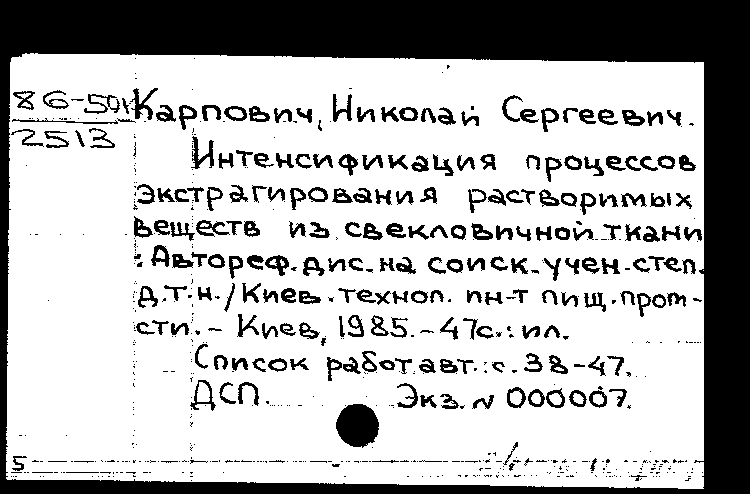 86-501
2513
Карпович, Николай Сергеевич.
Интенсификация процессов
экстрагирования растворимых
веществ из свекловичной ткани
: Автореф. дис. на соиск. учен. степ.
д.т.н. / Киев. технол. ин-т пищ. пром-
сти. - Киев, 1985. - 47с.: ил.
Список работ авт.: с. 38-47.
ДСП. Экз. N 000007.
5